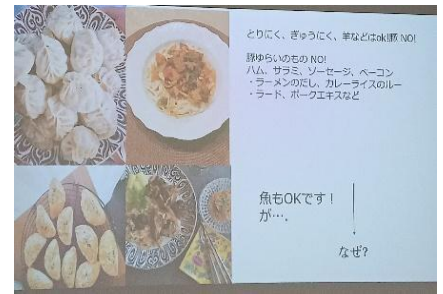 とりにく、ぎゅうにく、羊などはok!豚 NO!
豚ゆらいのもの NO!
ハム、サラミ、ソーセージ、ベーコン
・ラーメンのだし、カレーライスのルー
・ラード、ポークエキスなど
魚もOKです！
が….
なぜ?